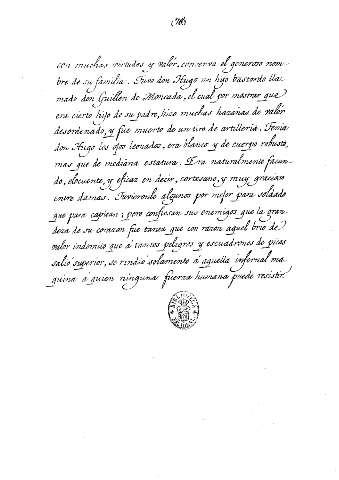 (78)
con muchas virtudes y valor, conserva el generoso nom-
bre de su familia. Tuvo don Hugo un hijo bastardo lla-
mado don Guillen de Moncada, el cual por mostrar que
era cierto hijo de su padre, hizo muchas hazañas de valor
desordenado, y fue muerto de un tiro de artilleria. Tenia
don Hugo los ojos leonados, era blanco y de cuerpo robusto,
mas que de mediana estatura. Era naturalmente facun-
do, elocuente, y eficaz en decir, cortesano, y muy gracioso
entre damas. Tuvieronlo algunos por mejor para soldado
que para capitan; pero confiesan sus enemigos que la gran-
deza de su corazon fue tanta que con razon aquel brio de
valor indomito que á tantos peligros y escuadrones de picas
salió superior, se rindió solamente á aquella infernal ma-
quina á quien ninguna fuerza humana puede resistir.
BIBLIOTECA